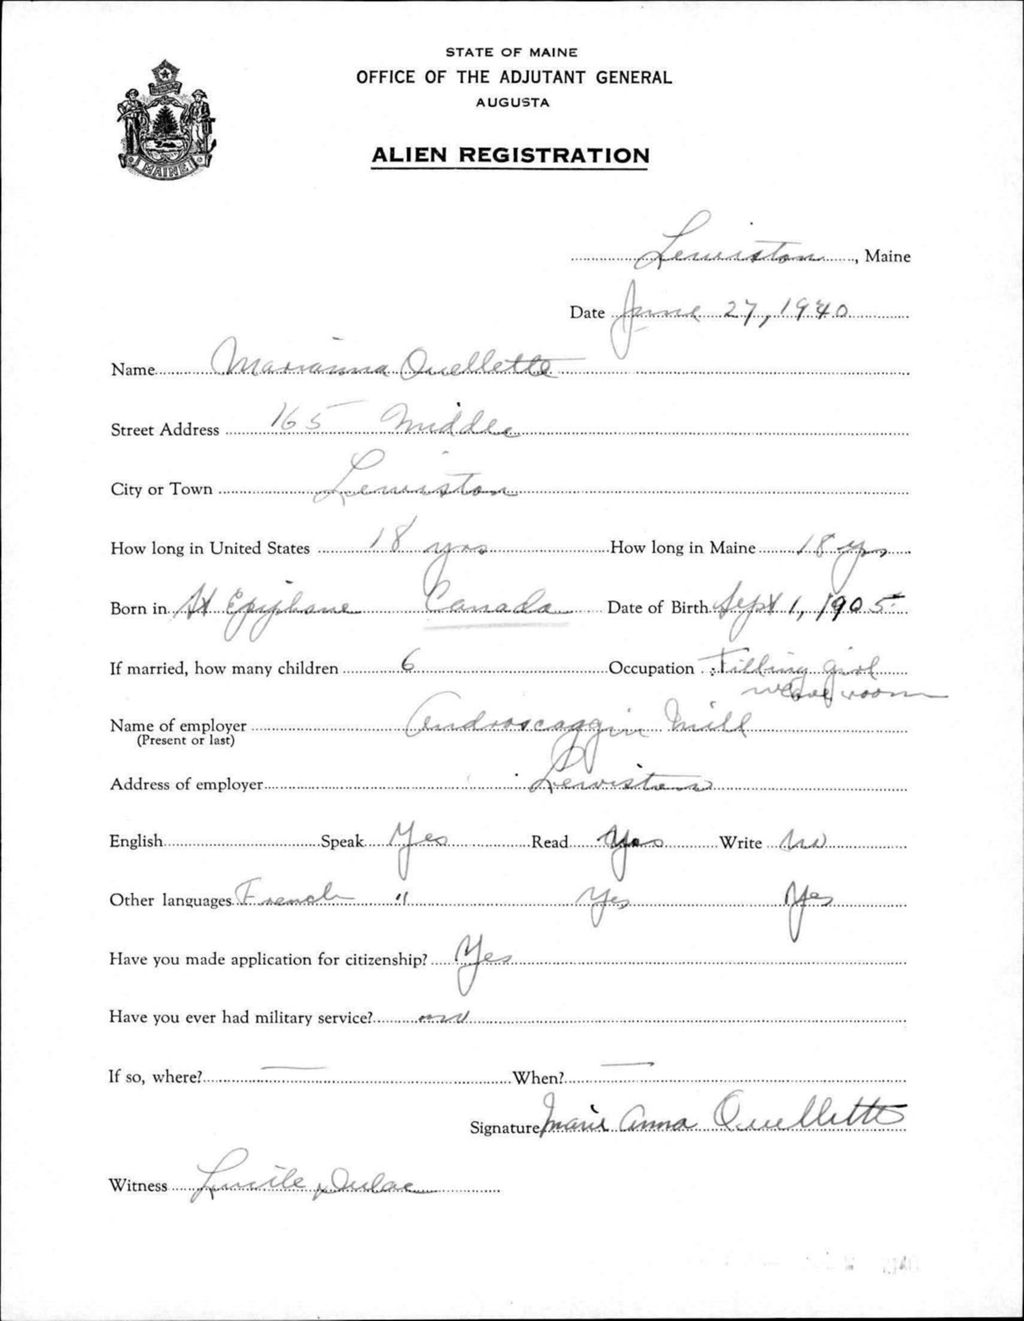 STATE OF MAINE
OFFICE OF THE ADJUTANT GENERAL
AUGUSTA
MAINE
ALIEN REGISTRATION
Lewiston, Maine
Date June 27, 1940
Name Marianna Ouellette
Street Address 165 Middle
City or Town Lewiston
How long in United States 18 yrs How long in Maine 18 yrs
Born in St Epiphane Canada Date of Birth Sept 1, 1905
If married, how many children 6 Occupation Filling girl
weave room
Name of employer Androscoggin Mill
(Present or last)
Address of employer Lewiston
English Speak Yes Read Yes Write No
Other languages French " Yes Yes
Have you made application for citizenship? Yes
Have you ever had military service? no
If so, where? — When? —
Signature Marie Anna Ouellette
Witness Lucile Dulac